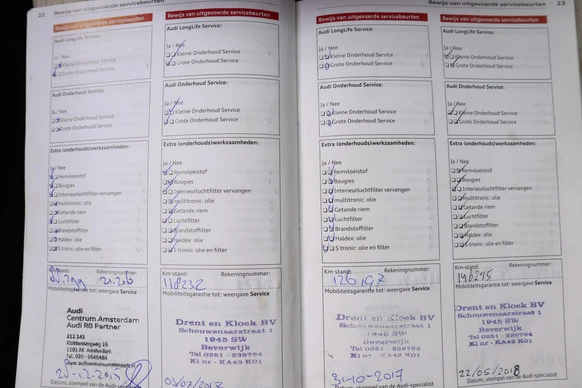 22 Bewijs van uitgevoerde servicebeurten
Audi LongLife Service:
Ja / Nee
Kleine Onderhoud Service
Grote Onderhoud Service
Audi Onderhoud Service:
Ja / Nee
Kleine Onderhoud Service
Grote Onderhoud Service
Extra (onderhouds)werkzaamheden:
Ja / Nee
Remvloeistof
Bougies
Interieurluchtfilter vervangen
multitronic: olie
Getande riem
Luchtfilter
Brandstoffilter
Haldex: olie
S tronic: olie en filter
Km-stand: Rekeningnummer:
Mobiliteitsgarantie tot: weergave Service
Audi
Centrum Amsterdam
Audi RB Partner
1101 AK Amsterdam
Datum, stempel van de Audi-specialist
Bewijs van uitgevoerde servicebeurten
Audi LongLife Service:
Ja / Nee
Kleine Onderhoud Service
Grote Onderhoud Service
Audi Onderhoud Service:
Ja / Nee
Kleine Onderhoud Service
Grote Onderhoud Service
Extra (onderhouds)werkzaamheden:
Ja / Nee
Remvloeistof
Bougies
Interieurluchtfilter vervangen
multitronic: olie
Getande riem
Luchtfilter
Brandstoffilter
Haldex: olie
S tronic: olie en filter
Km-stand: Rekeningnummer:
118232
Mobiliteitsgarantie tot: weergave Service
Drent en Kloek BV
Schouwenaarstraat 1
1945 SW
Beverwijk
Tel 0251 - 239764
KI nr - KA43 K01
Datum, stempel van de Audi-specialist
Bewijs van uitgevoerde servicebeurten
Audi LongLife Service:
Ja / Nee
Kleine Onderhoud Service
Grote Onderhoud Service
Audi Onderhoud Service:
Ja / Nee
Kleine Onderhoud Service
Grote Onderhoud Service
Extra (onderhouds)werkzaamheden:
Ja / Nee
Remvloeistof
Bougies
Interieurluchtfilter vervangen
multitronic: olie
Getande riem
Luchtfilter
Brandstoffilter
Haldex: olie
S tronic: olie en filter
Km-stand: Rekeningnummer:
Mobiliteitsgarantie tot: weergave Service
Drent en Kloek BV
Schouwenaarstraat 1
1945 SW
Beverwijk
Tel 0251 - 239764
KI nr - KA43 K01
31-10-2017
Datum, stempel van de Audi-specialist
Bewijs van uitgevoerde servicebeurten 23
Audi LongLife Service:
Ja / Nee
Kleine Onderhoud Service
Grote Onderhoud Service
Audi Onderhoud Service:
Ja / Nee
Kleine Onderhoud Service
Grote Onderhoud Service
Extra (onderhouds)werkzaamheden:
Ja / Nee
Remvloeistof
Bougies
Interieurluchtfilter vervangen
multitronic: olie
Getande riem
Luchtfilter
Brandstoffilter
Haldex: olie
S tronic: olie en filter
Km-stand: Rekeningnummer:
Mobiliteitsgarantie tot: weergave Service
Drent en Kloek BV
Schouwenaarstraat 1
1945 SW
Beverwijk
Tel 0251 - 239764
KI nr - KA43 K01
22/05/2018
Datum, stempel van de Audi-specialist